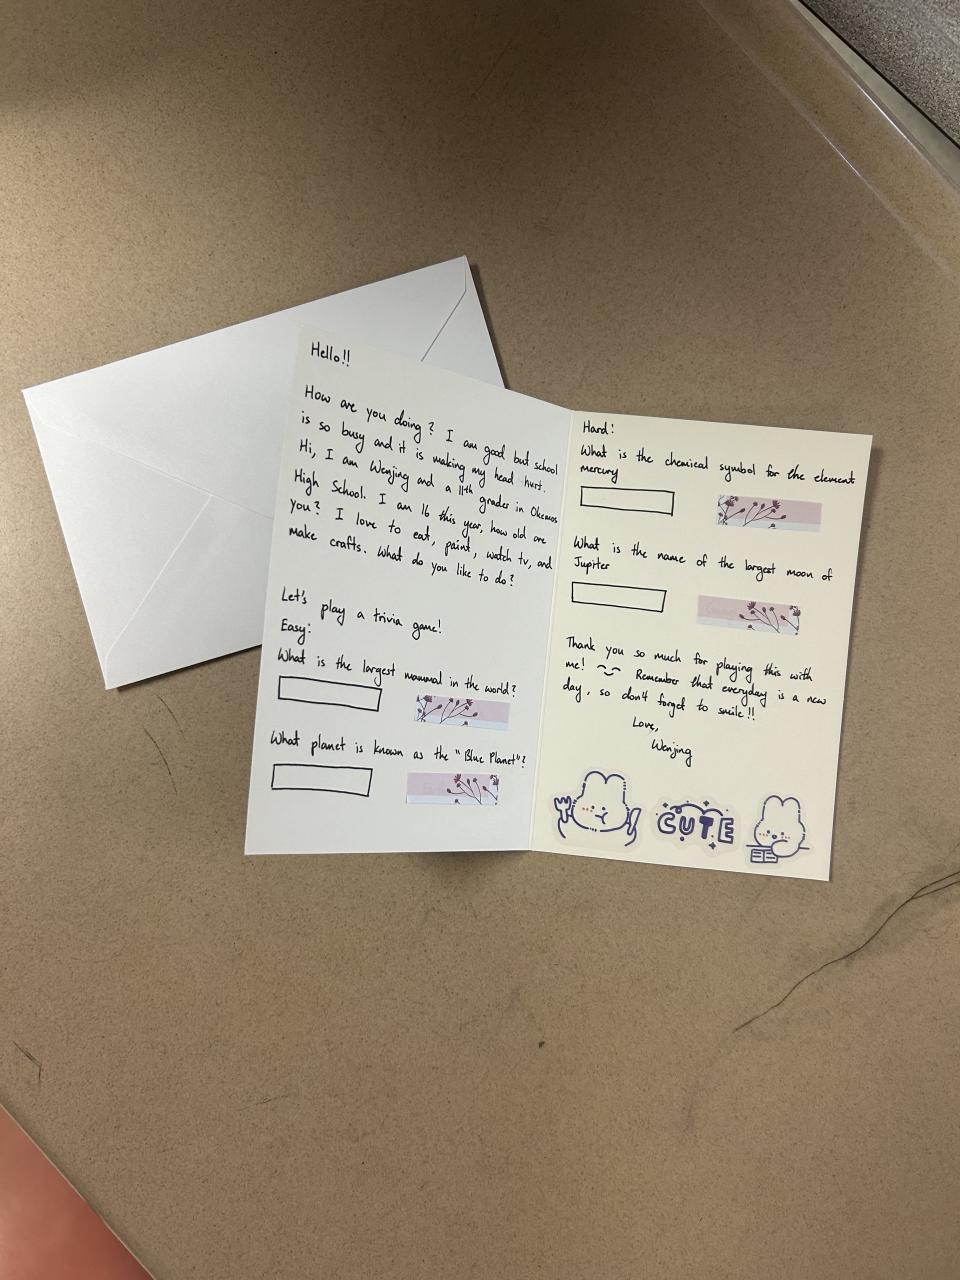 Hello!!
How are you doing? I am good but school
is so busy and it is making my head hurt.
Hi, I am Wenjing and a 11th grader in Okemos
High School. I am 16 this year, how old are
you? I love to eat, paint, watch tv, and
make crafts. What do you like to do?
Let's play a trivia game!
Easy:
What is the largest mammal in the world?
What planet is known as the "Blue Planet"?
Hard:
What is the chemical symbol for the element
mercury
What is the name of the largest moon of
Jupiter
Thank you so much for playing this with
me! Remember that everyday is a new
day, so don't forget to smile!!
Love,
Wenjing
CUTE